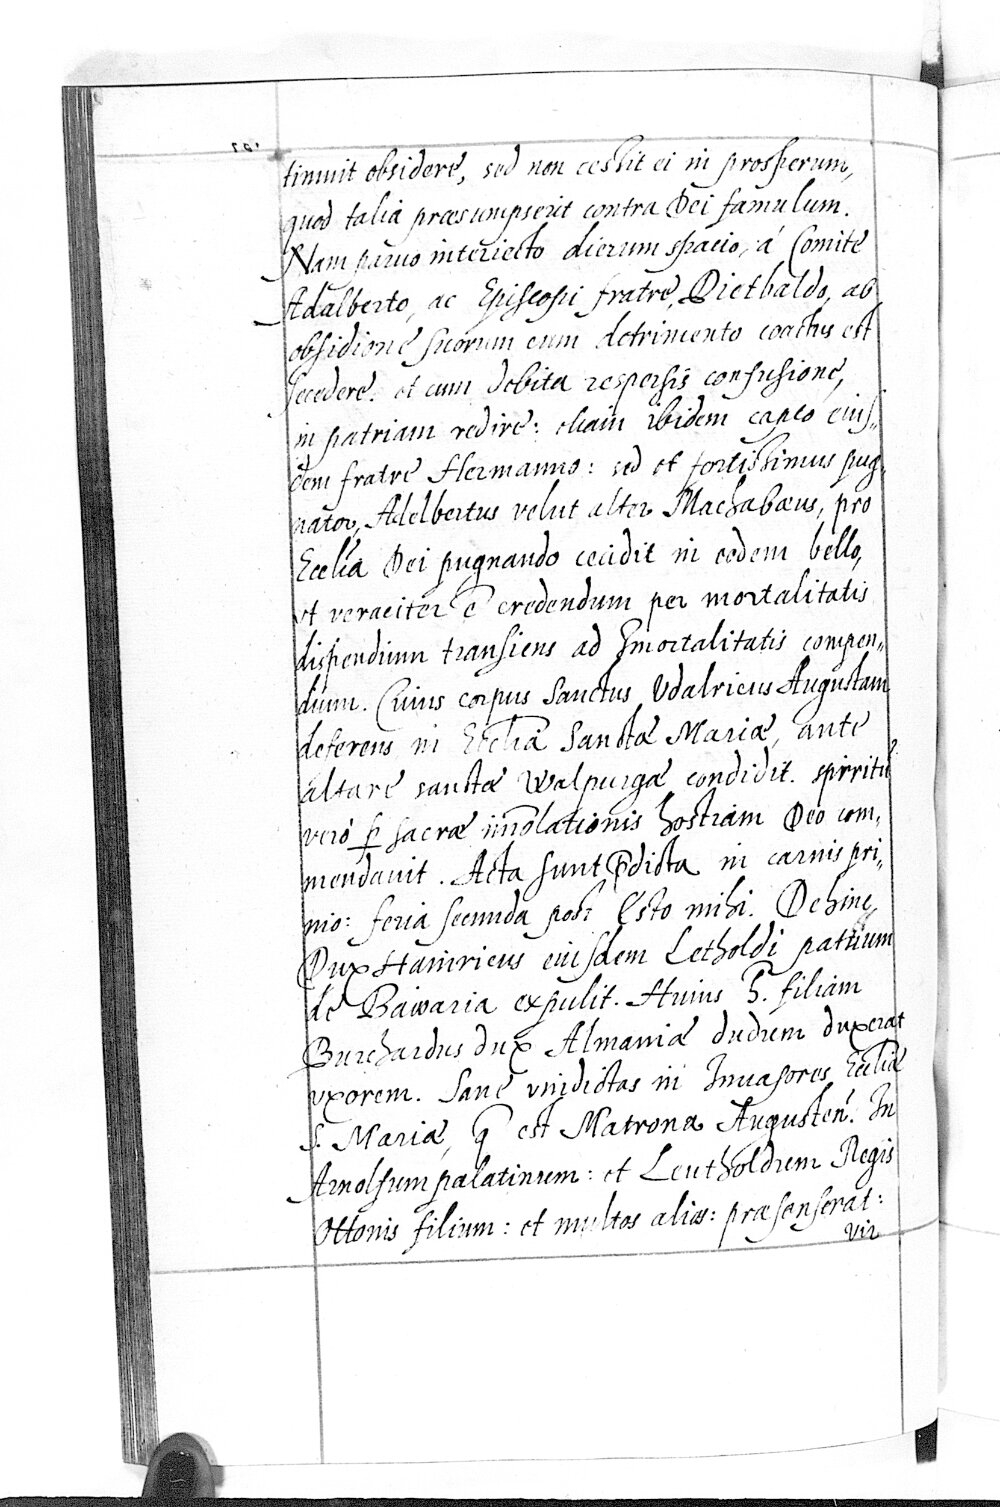 tinuit obsidere, sed non cessit ei in prosperum,
quod talia præsumpserit contra Dei famulum.
Nam paruo interiecto dierum spacio, á Comite
Adalberto, ac Episcopi fratre, Dietbaldo, ab
obsidione suorum cum detrimento coactus est
secedere. et cum debita respersis confusione,
in patriam redire: etiam ibidem capto eius„
dem fratre Hermanno: sed et fortissimus pug„
nator, Adelbertus velut alter Machabæus, pro
Ecclīa Dei pugnando cecidit in eodem bello,
et veraciter ē credendum per mortalitatis
dispendium transiens ad Imortalitatis compen„
dium. Cuius corpus Sanctus Vdalricus Augustam
deferens in Ecclīa Sanctæ Mariæ, ante
altare sanctæ Walpurgæ condidit. spirritū
veró ꝑ sacræ immolationis hostiam Deo com„
mendauit. Acta sunt p̄dicta in carnis pri„
nio: feria secunda post Esto mihi. Dehinc
Dux Hainricus eiusdem Letholdi patruum
de Bawaria expulit. Huius h̄. filiam
Burchardus dux Almaniæ dudum duxerat
vxorem. Sane vindictas in Inuasores Ecclīæ
S. Mariæ, q̄ est Matrona Augusten̄. In
Arnolfum palatinum: et Leutholdum Regis
Ottonis filium: et multos alios: præsenserat:
vir